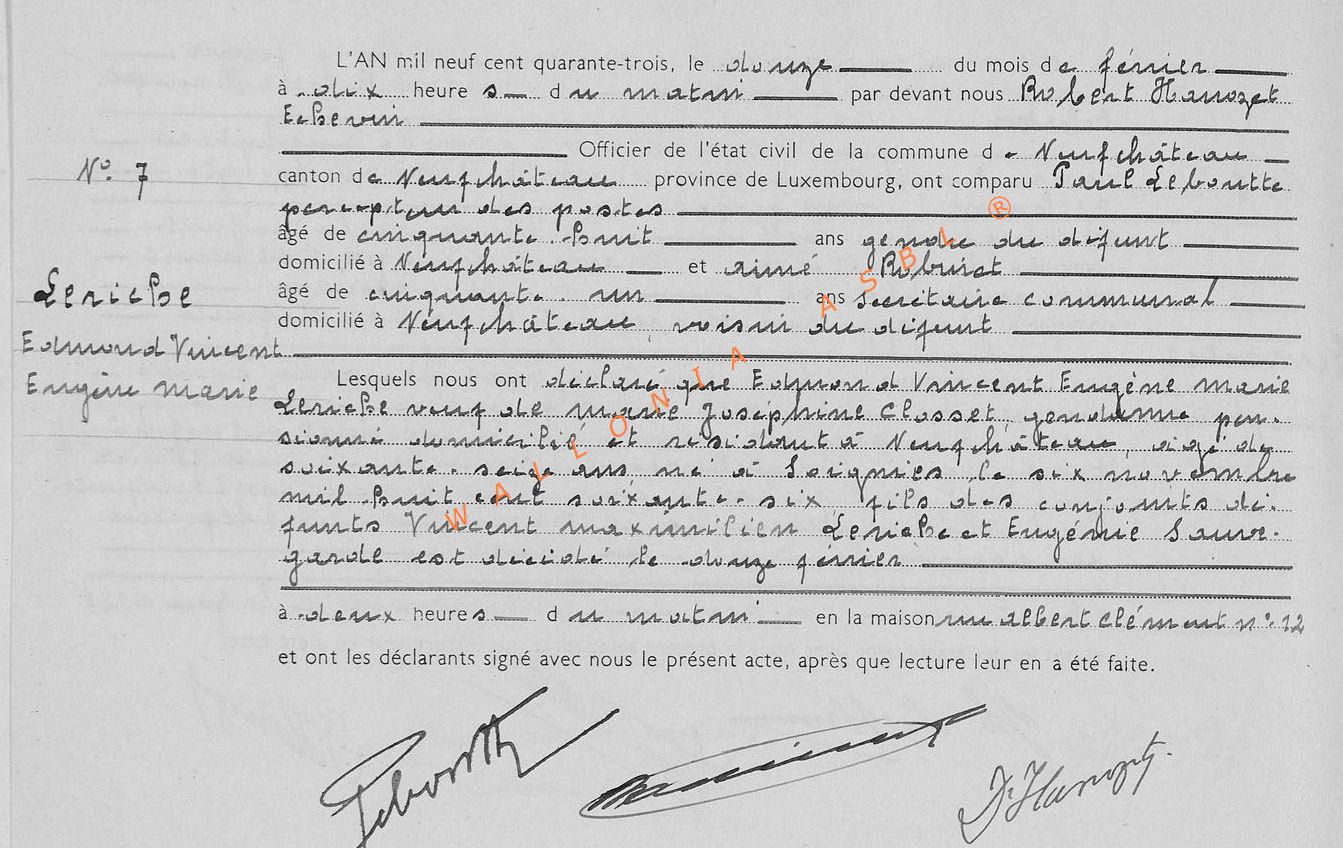 L'AN mil neuf cent quarante-trois, le douze du mois de février
à dix heures du matin par devant nous Robert Hanozet
Echevin
Officier de l'état civil de la commune de Neufchâteau
N° 7
canton de Neufchâteau province de Luxembourg, ont comparu Paul Leboutte
percepteur des postes
âgé de cinquante-huit ans gendre du défunt
domicilié à Neufchâteau et Aimé
Leriche
âgé de cinquante-un ans secrétaire communal
domicilié à Neufchâteau voisin du défunt
Edmond Vincent
Eugène Marie
Lesquels nous ont déclaré que Edmond Vincent Eugène Marie
Leriche veuf de Marie Joséphine Closset, gendarme pen-
sionné domicilié et résidant à Neufchâteau, âgé de
soixante-seize ans né à Soignies le six novembre
mil huit cent soixante-six, fils des conjoints dé-
funts Vincent Maximilien Leriche et Eugénie Sauve-
garde est décédé le douze février
à deux heures du matin en la maison rue Albert Clément n° 12
et ont les déclarants signé avec nous le présent acte, après que lecture leur en a été faite.
WALLONIA ASBL ®
Leboutte
Dr Hanozet